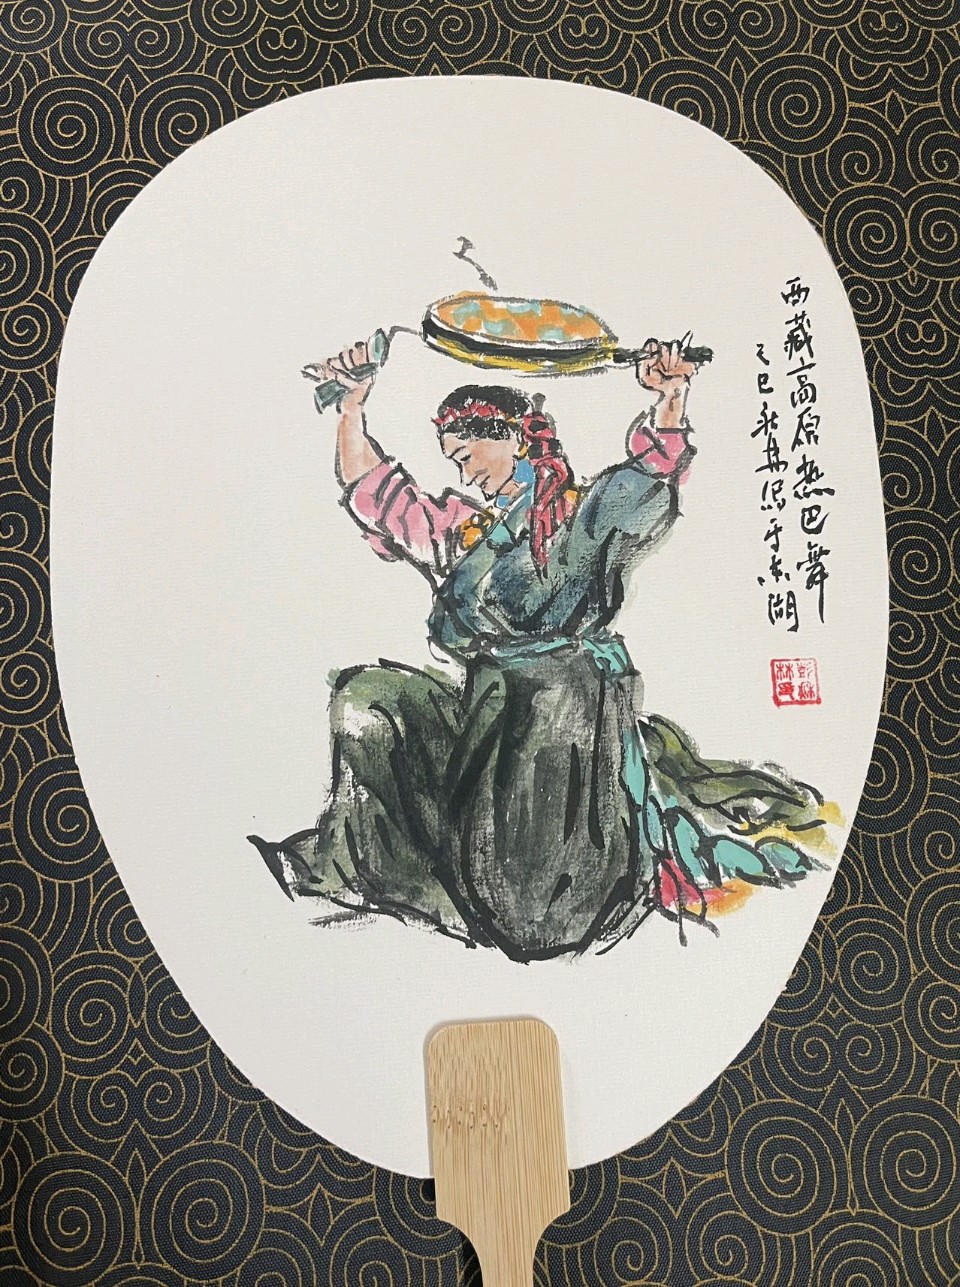 西藏高原热巴舞
乙巳秋 写于东湖
彭 林印